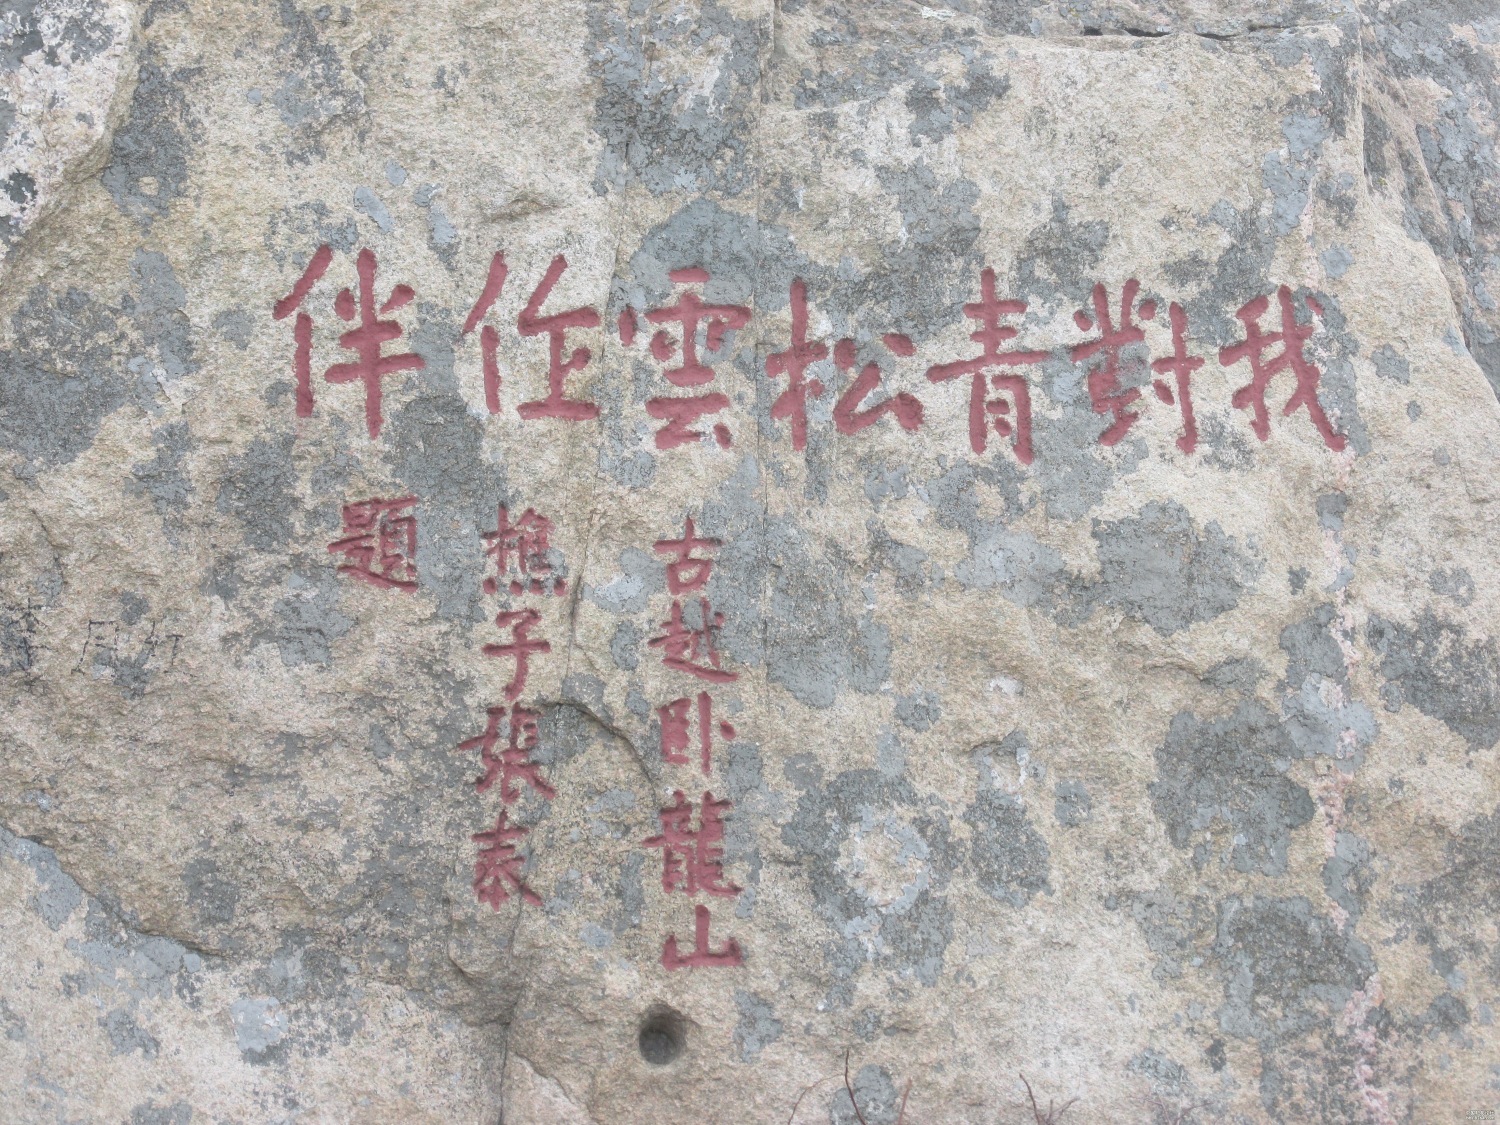 我對青松雲作伴
古越卧龍山
樵子張泰
題